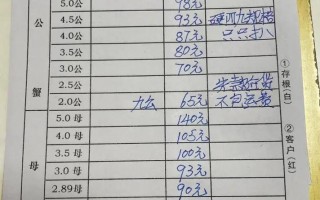 5.0公 98元
4.5公 93元
4.0公 87元 只只扎
3.5公 80元
3.0公 70元
2.5公
2.0公 九公 65元 不包运费
5.0母 140元
4.0母 105元
3.5母 100元
3.0母 93元
2.89母 90元
公
蟹
母
①存根(白)
②客户(红)